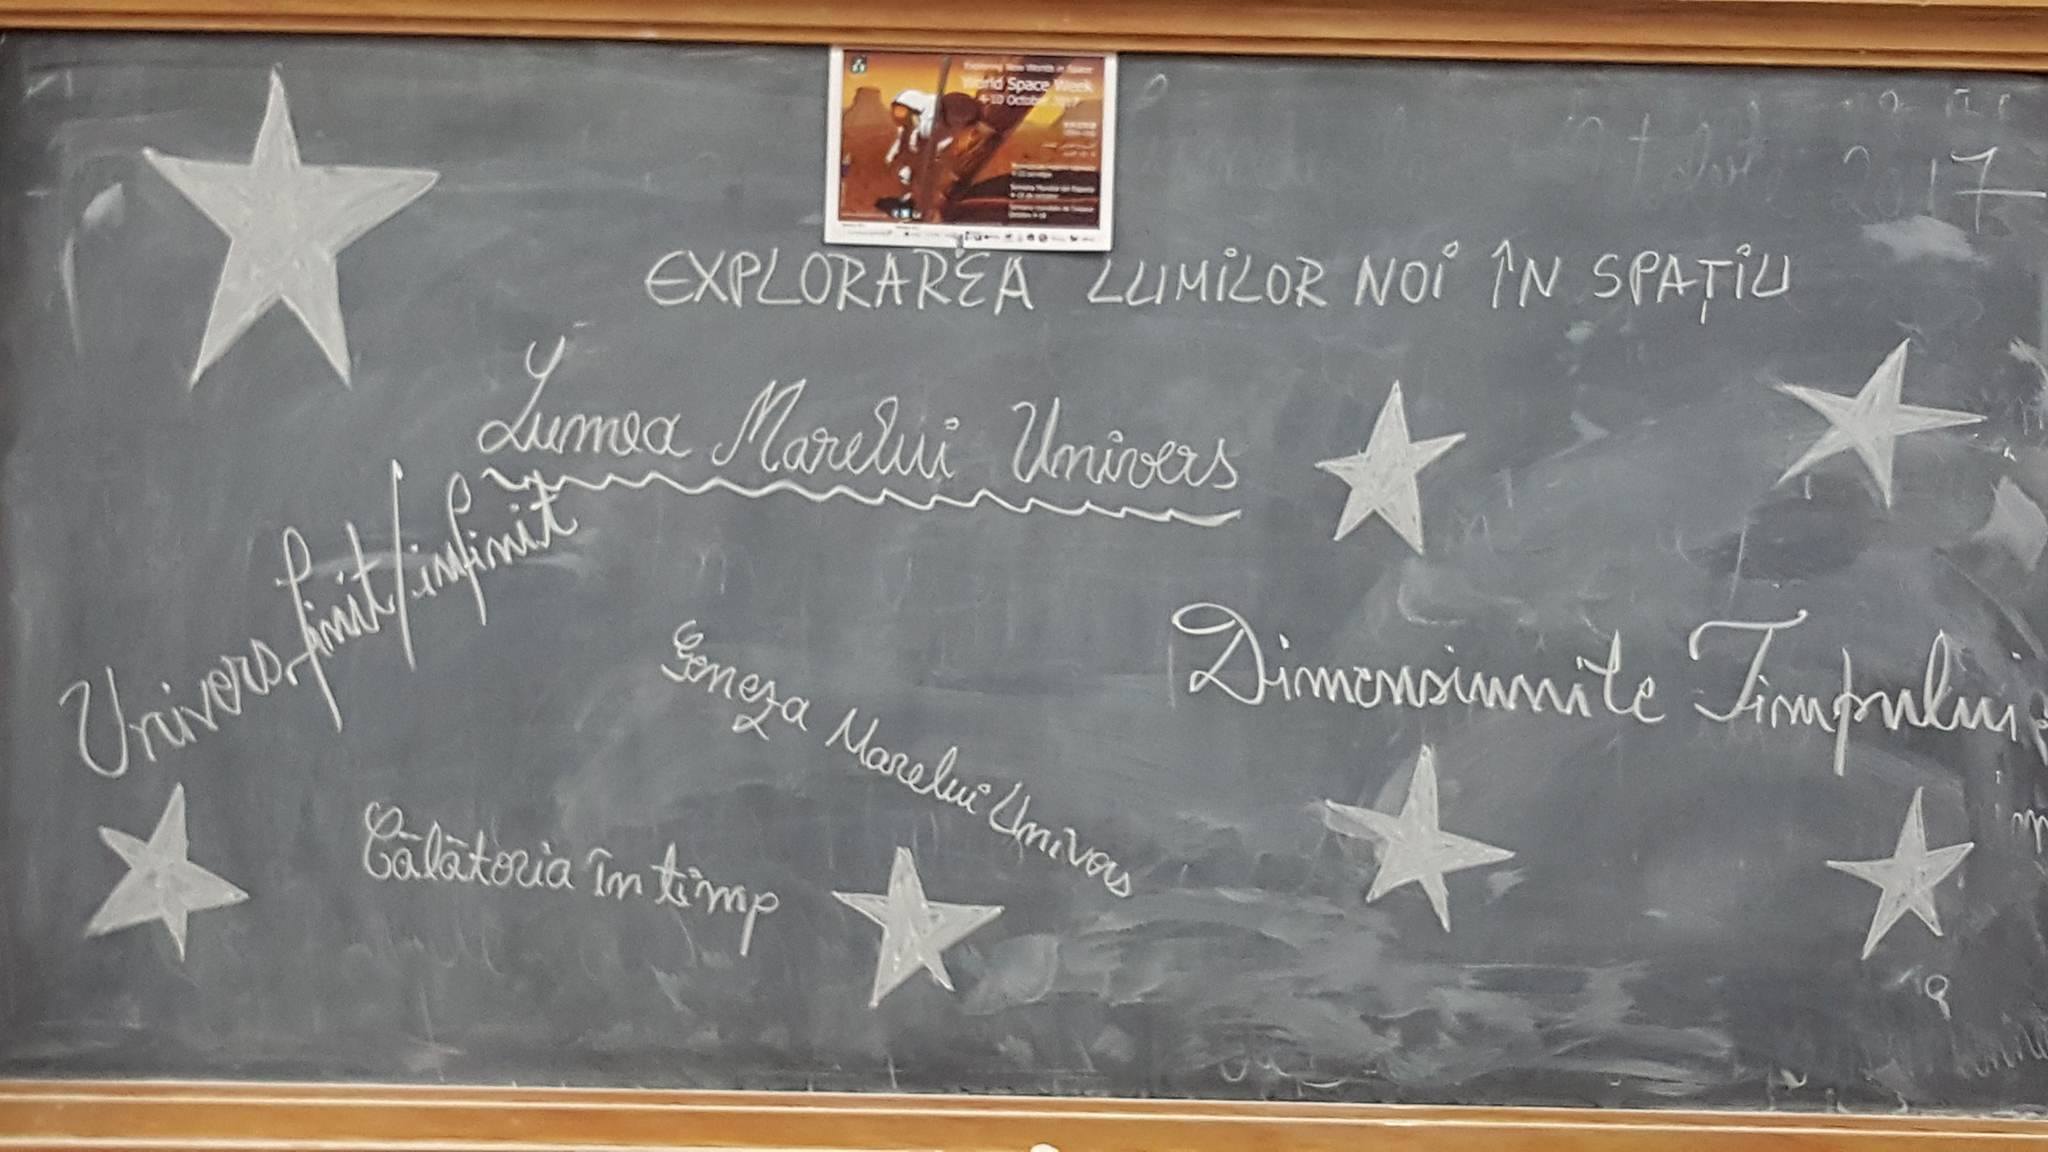 Exploring New Worlds in Space
World Space Week
4-10 October 2017
2017
EXPLORAREA LUMILOR NOI ÎN SPAȚIU
Lumea Marelui Univers
Univers finit/infinit
Geneza Marelui Univers
Dimensiunile Timpului
Călătoria în timp